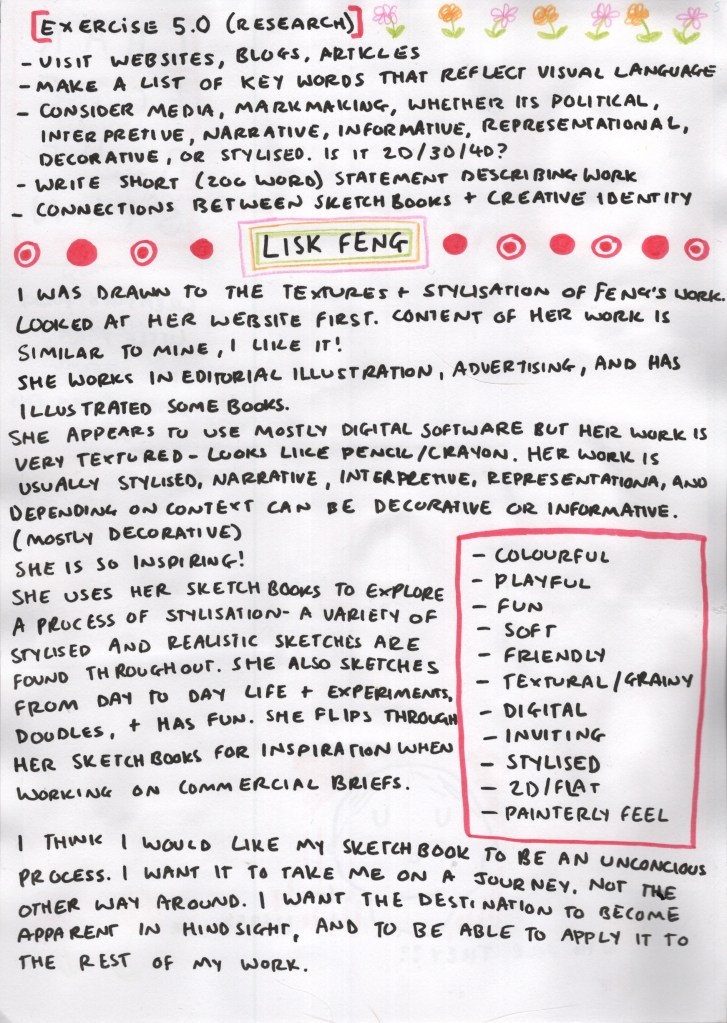 [EXERCISE 5.0 (RESEARCH)]
- VISIT WEBSITES, BLOGS, ARTICLES
- MAKE A LIST OF KEY WORDS THAT REFLECT VISUAL LANGUAGE
- CONSIDER MEDIA, MARKMAKING, WHETHER ITS POLITICAL,
INTERPRETIVE, NARRATIVE, INFORMATIVE, REPRESENTATIONAL,
DECORATIVE, OR STYLISED. IS IT 2D/3D/4D?
- WRITE SHORT (200 WORD) STATEMENT DESCRIBING WORK
- CONNECTIONS BETWEEN SKETCHBOOKS + CREATIVE IDENTITY
LISK FENG
I WAS DRAWN TO THE TEXTURES + STYLISATION OF FENG'S WORK.
LOOKED AT HER WEBSITE FIRST. CONTENT OF HER WORK IS
SIMILAR TO MINE, I LIKE IT!
SHE WORKS IN EDITORIAL ILLUSTRATION, ADVERTISING, AND HAS
ILLUSTRATED SOME BOOKS.
SHE APPEARS TO USE MOSTLY DIGITAL SOFTWARE BUT HER WORK IS
VERY TEXTURED - LOOKS LIKE PENCIL/CRAYON. HER WORK IS
USUALLY STYLISED, NARRATIVE, INTERPRETIVE, REPRESENTATIONA, AND
DEPENDING ON CONTEXT CAN BE DECORATIVE OR INFORMATIVE.
(MOSTLY DECORATIVE)
SHE IS SO INSPIRING!
SHE USES HER SKETCHBOOKS TO EXPLORE
A PROCESS OF STYLISATION - A VARIETY OF
STYLISED AND REALISTIC SKETCHES ARE
FOUND THROUGHOUT. SHE ALSO SKETCHES
FROM DAY TO DAY LIFE + EXPERIMENTS,
DOODLES, + HAS FUN. SHE FLIPS THROUGH
HER SKETCHBOOKS FOR INSPIRATION WHEN
WORKING ON COMMERCIAL BRIEFS.
- COLOURFUL
- PLAYFUL
- FUN
- SOFT
- FRIENDLY
- TEXTURAL/GRAINY
- DIGITAL
- INVITING
- STYLISED
- 2D/FLAT
- PAINTERLY FEEL
I THINK I WOULD LIKE MY SKETCHBOOK TO BE AN UNCONCIOUS
PROCESS. I WANT IT TO TAKE ME ON A JOURNEY, NOT THE
OTHER WAY AROUND. I WANT THE DESTINATION TO BECOME
APPARENT IN HINDSIGHT, AND TO BE ABLE TO APPLY IT TO
THE REST OF MY WORK.